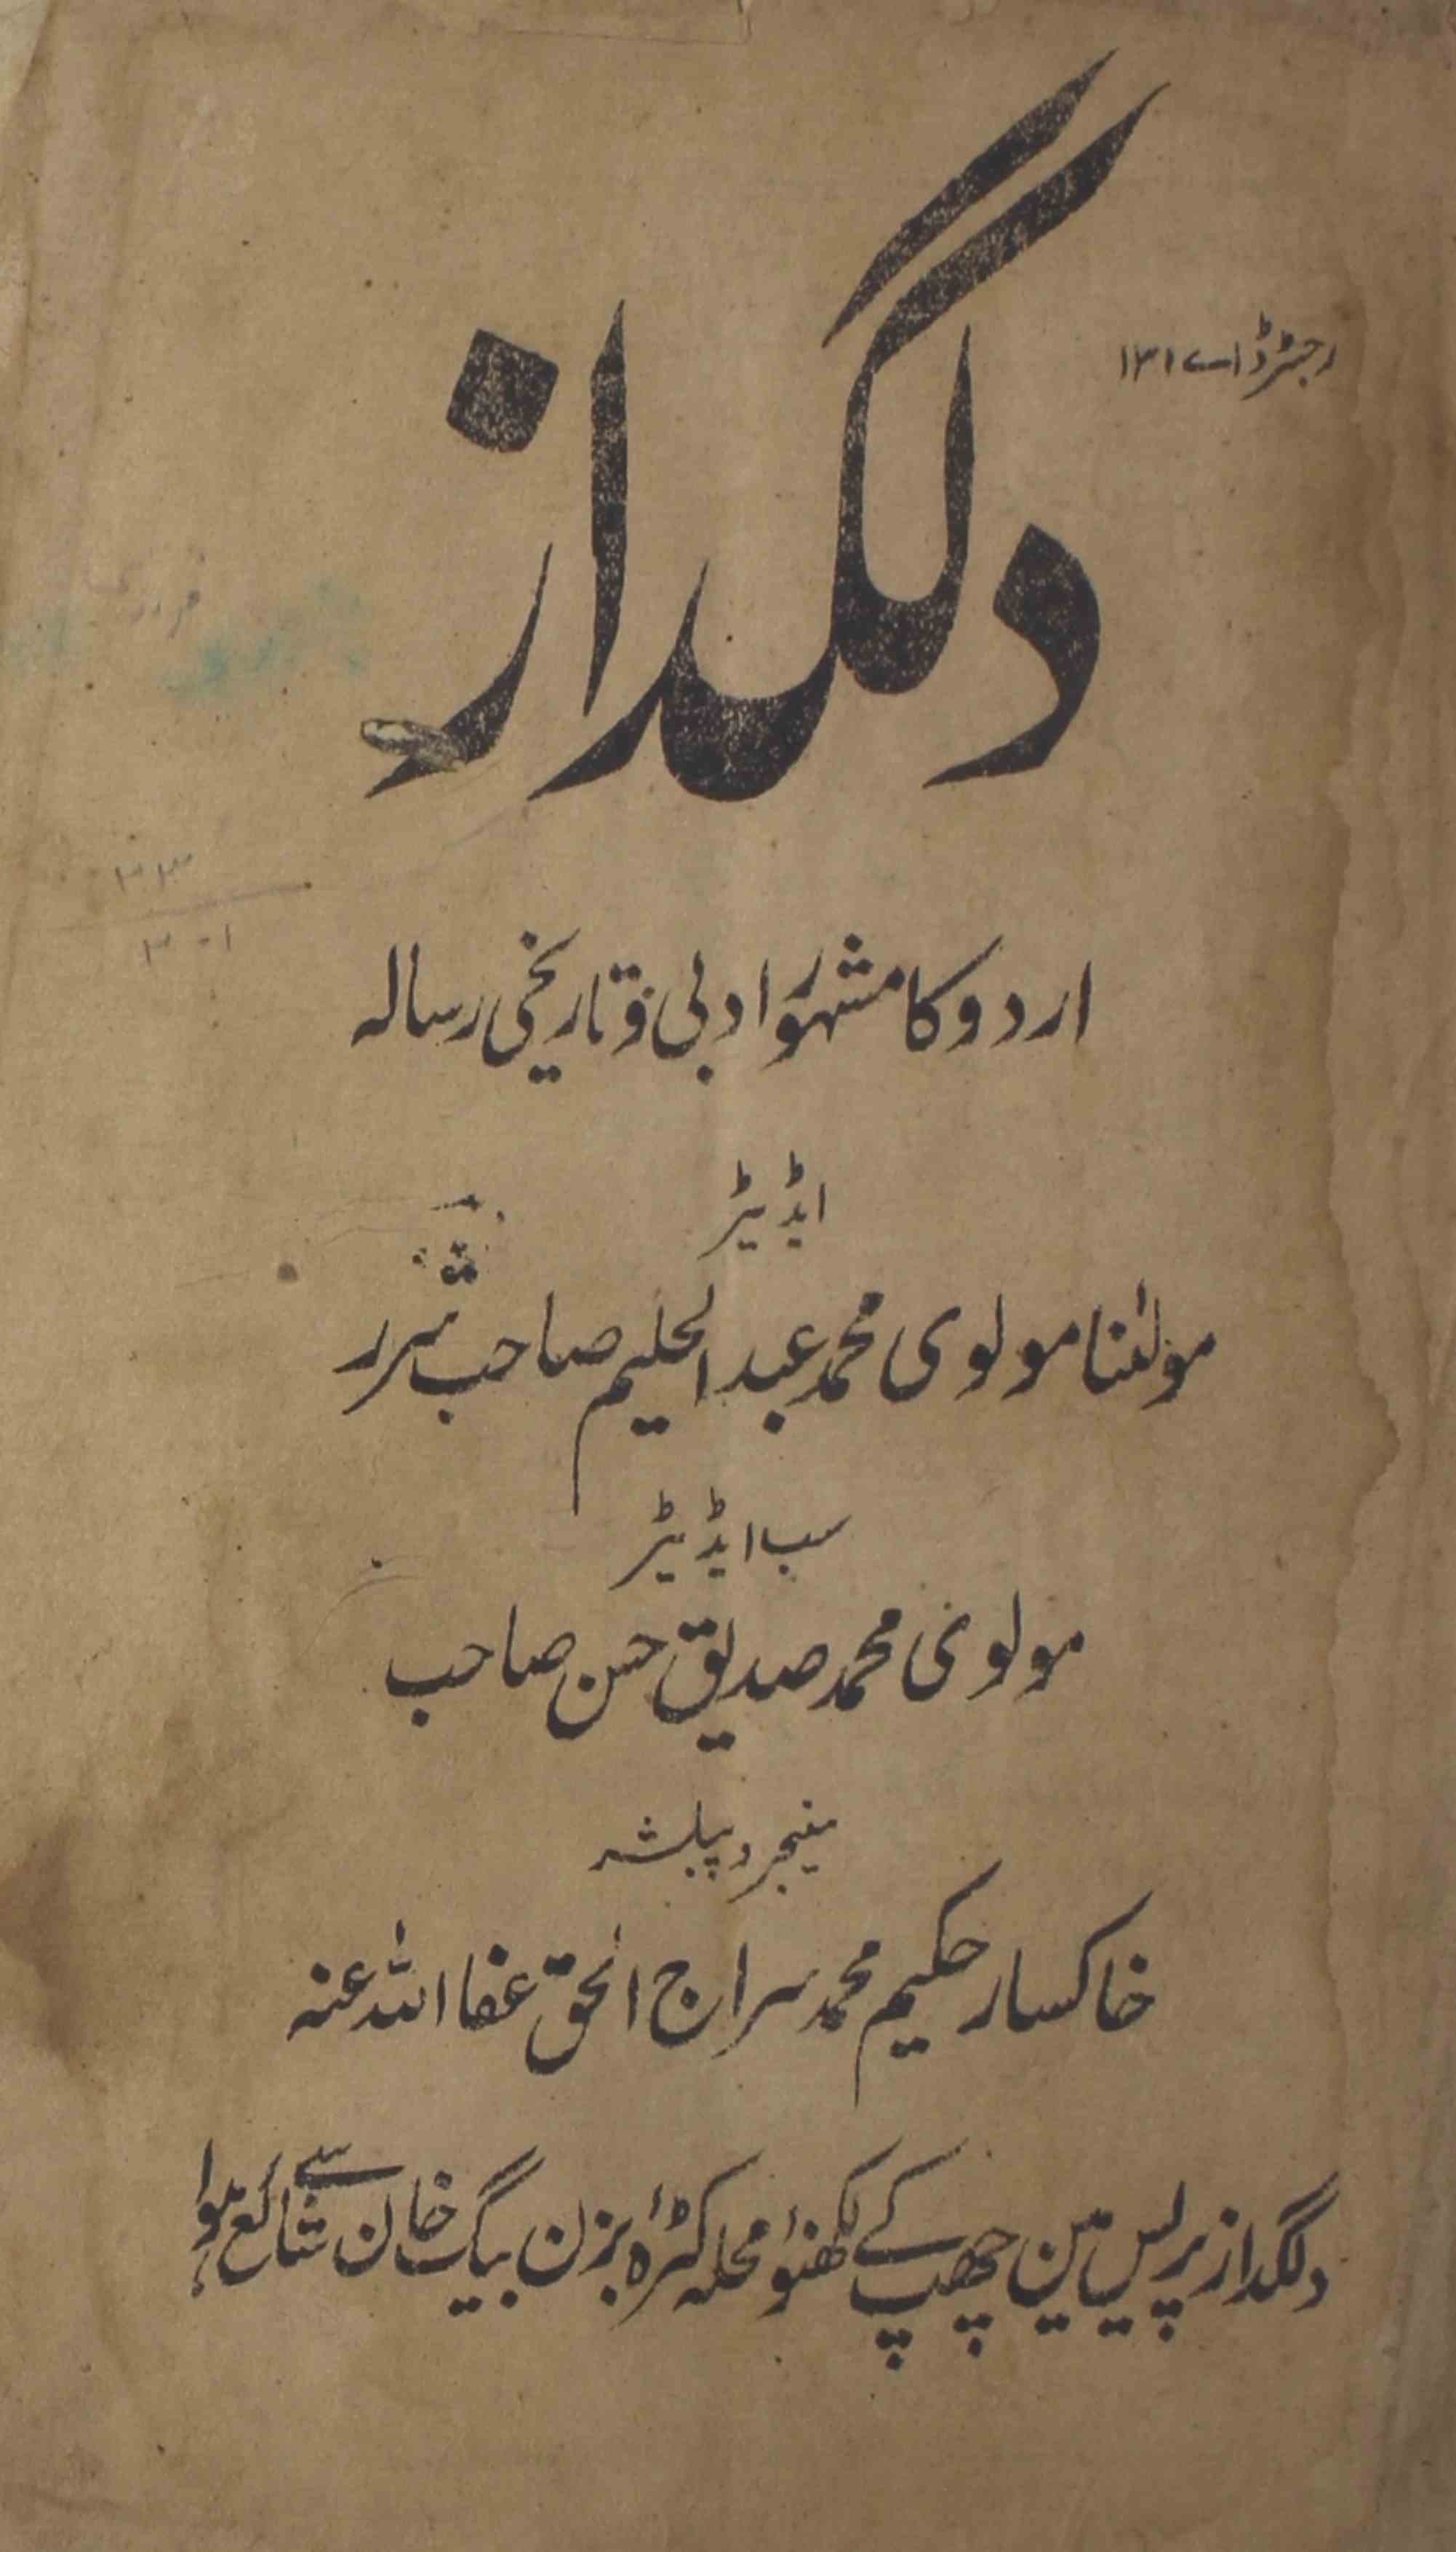 رجسٹرڈ اے ۱۳۱
دلگداز
اردو کا مشہور ادبی و تاریخی رسالہ
اڈیٹر
مولٰنا مولوی محمد عبدالحلیم صاحب شرر
سب اڈیٹر
مولوی محمد صدیق حسن صاحب
منیجر و پبلشر
خاکسار حکیم محمد سراج الحق عفا اللہ عنہ
دلگداز پریس مین چھپ کے لکھنؤ محلہ کٹرۂ بزن بیگ خان سے شائع ہوا